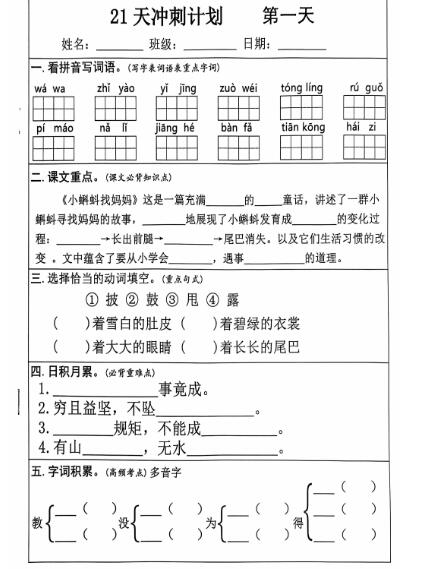 21天冲刺计划 第一天
姓名：________ 班级：________ 日期：________
一. 看拼音写词语。(写字表词语表重点字词)
wá wa zhǐ yào yǐ jīng zuò wéi tóng líng rú guǒ
pí máo nǎ lǐ jiāng hé bàn fǎ tiān kōng hái zi
二. 课文重点。(课文必背知识点)
《小蝌蚪找妈妈》这是一篇充满______的______童话，讲述了一群小
蝌蚪寻找妈妈的故事，______地展现了小蝌蚪发育成______的变化过
程：______→长出前腿→______→尾巴消失。以及它们生活习惯的改
变 。文中蕴含了要从小学会______，遇事______的道理。
三. 选择恰当的动词填空。(重点句式)
① 披 ② 鼓 ③ 甩 ④ 露
( )着雪白的肚皮 ( )着碧绿的衣裳
( )着大大的眼睛 ( )着长长的尾巴
四. 日积月累。(必背重难点)
1. ____________事竟成。
2. 穷且益坚，不坠____________。
3. ________规矩，不能成__________。
4. 有山________，无水__________。
五. 字词积累。(高频考点) 多音字
___ ( )
___ ( ) ___ ( ) ___ ( ) ___ ( )
教 没 为 得
___ ( ) ___ ( ) ___ ( ) ___ ( )